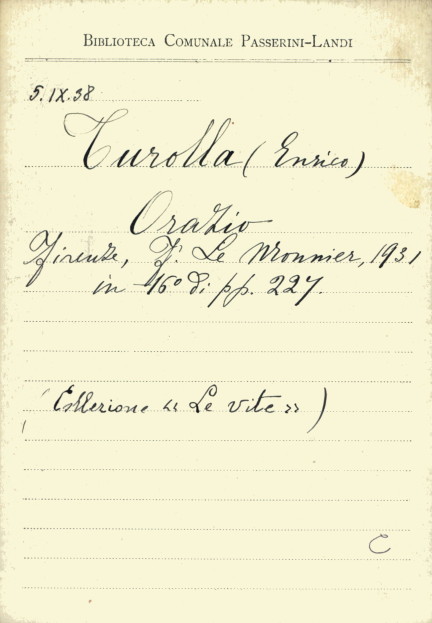 BIBLIOTECA COMUNALE PASSERINI-LANDI
5.IX.38
Turolla (Enrico)
Orazio
Firenze, F. Le Monnier, 1931
in -16° di pp. 227.
(Collezione « Le vite » )
C